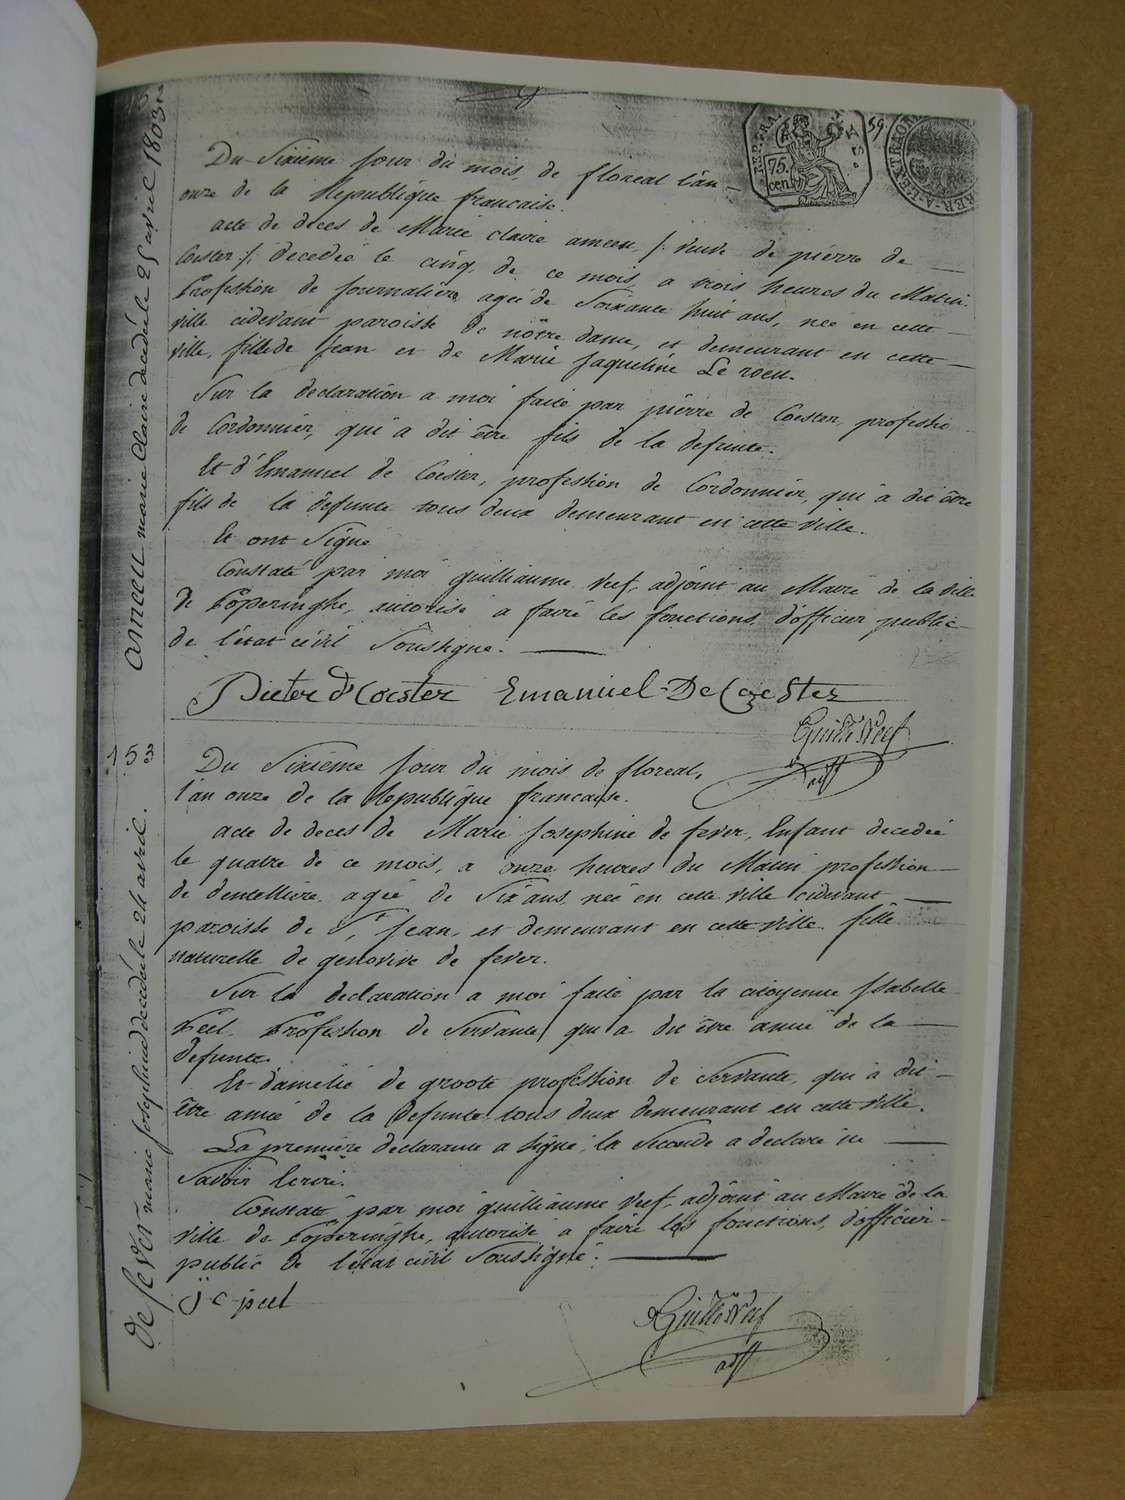 59.
75.
cen.
Du Sixiéme Jour du mois de floreal l'an
onze de la Republique francaise.
acte de deces de Marie claire ameeu, /: veuve de piérre de
Coester :/, décedée le cinq de ce mois, a trois heures du Matin
Profession de Journaliére, ageé de Soixante huit ans, neé en cette
ville cidevant paroisse de nôtre dame, et demeurant en cette
ville, fille de Jean et de Marie Jaqueline Le roeu.
Sur la declaration a moi faite par piérre de Coester, professio
de Cordonniér, qui a dit être fils de la defunte.
Et d'Emanuel de Coester, profession de Cordonniér, qui à dit être
fils de la defunte tous deux demeurant en cette ville.
Et ont Signé
Constaté par moi guilliaume Veef, adjoint au Maire de la ville
de Poperinghe, autorisé a faire les fonctions d'officier public
de l'état civil Soussigné.
Pieter d'Coester Emanuel De Coester
Guille Veef
adjt
ameeu marie Claire decedé le 25 avril 1803
153
Du Sixiéme Jour du mois de floreal,
l'an onze de la Republique francaise.
acte de deces de Marie Josephine de fever, Enfant decedeé
le quatre de ce mois, a onze heures du Matin profession
de dentelliére, ageé de Six ans, neé en cette ville cidevant
paroisse de St Jean, et demeurant en cette ville fille
naturelle de genovive de fever.
Sur la declaration a moi faite par la citoyenne Isabelle
Peel Profession de Servante, qui a dit être amie de la
defunte.
Et d'amelie de groote profession de Servante, qui à dit
être amie de la defunte, tous deux demeurant en cette ville.
La premiére declarante a Signé, la Seconde a declaré ne
Savoir Ecrire.
Constaté par moi guilliaume Veef, adjoint au Maire de la
ville de Poperinghe, autorisé a faire les fonctions d'officier
public de l'état civil Soussigné.
J C peel
Guille Veef
adjt
de fever marie Josephine decedé le 24 avril.